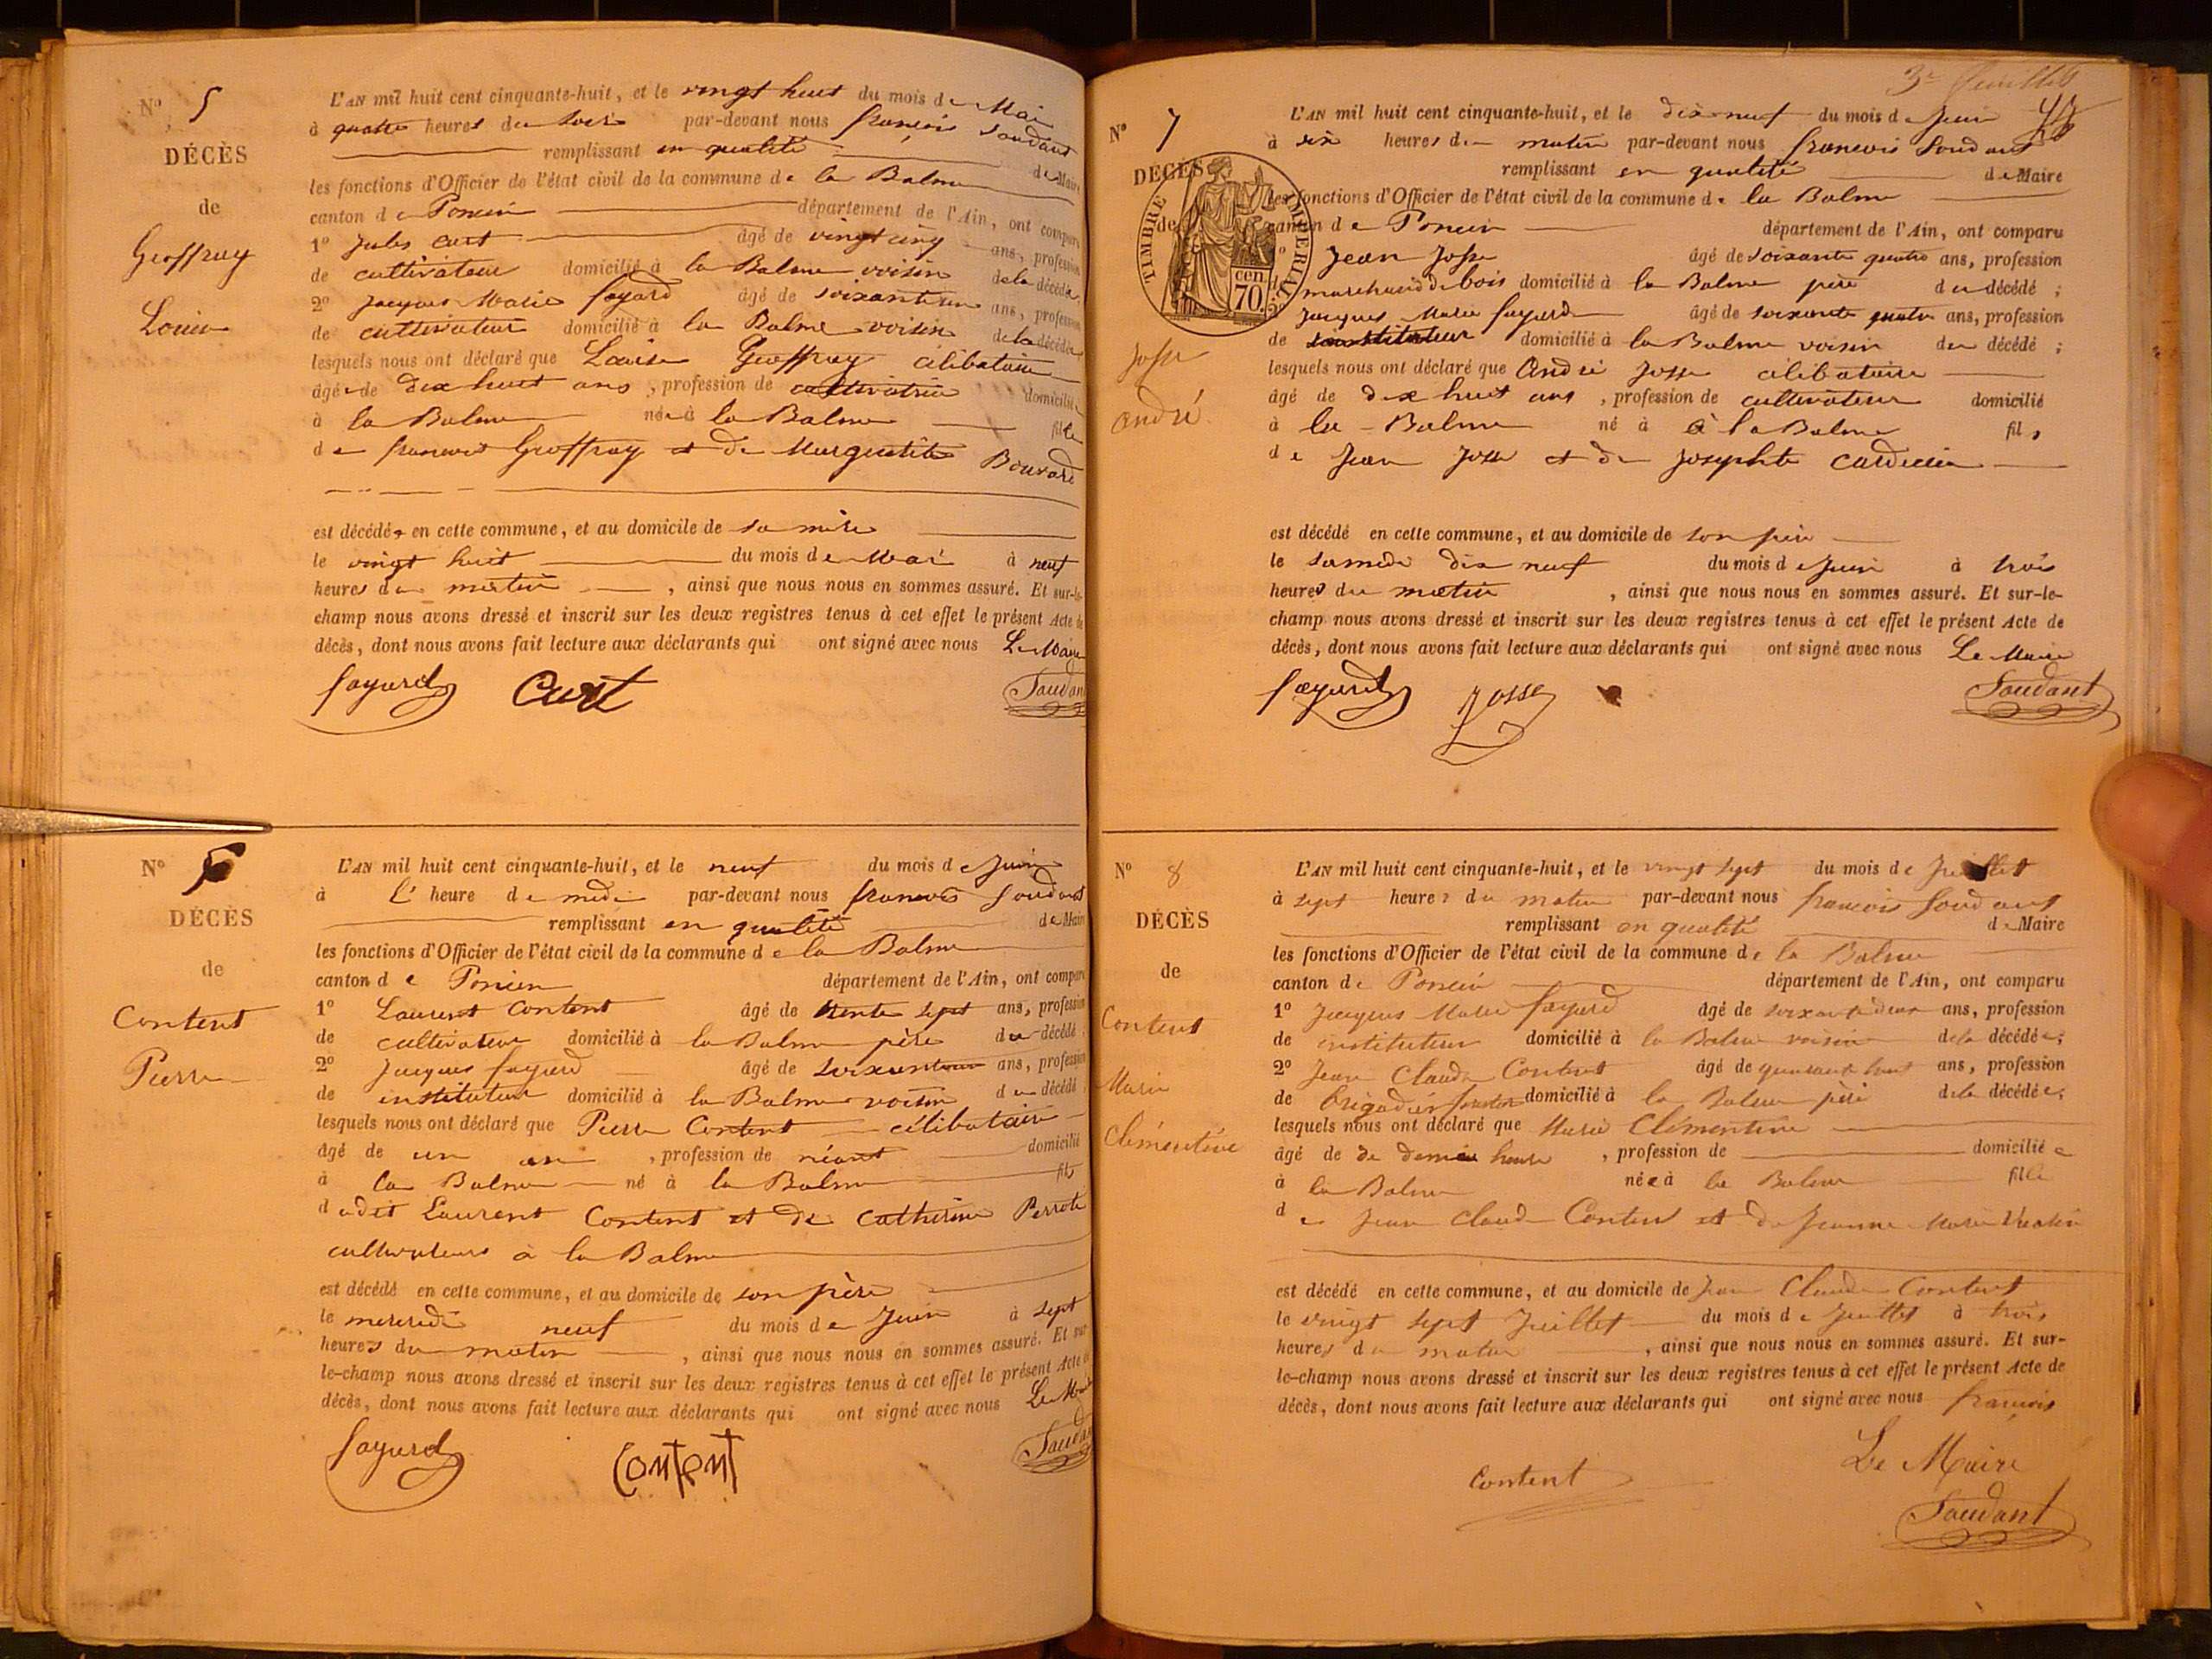 N° 5
DÉCÈS
de
Geoffray
Louise
L'AN mil huit cent cinquante-huit, et le vingt huit du mois de Mai
à quatre heures du soir par-devant nous françois Soudant
remplissant en qualité de Maire
les fonctions d'Officier de l'état civil de la commune de la Balme
canton de Poncin département de l'Ain, ont comparu
1° Jules Curt âgé de vingt cinq ans, profession
de cultivateur domicilié à la Balme voisin de la décédée
2° Jacques Marie fayard âgé de soixante un ans, profession
de cultivateur domicilié à la Balme voisin de la décédée
lesquels nous ont déclaré que Louise Geoffray célibataire
âgée de dix huit ans, profession de cultivatrice domiciliée
à la Balme née à la Balme fille
de francois Geoffray et de Marguerite Bouvard
est décédée en cette commune, et au domicile de sa mère
le vingt huit du mois de Mai à neuf
heures du matin, ainsi que nous nous en sommes assuré. Et sur-le-
champ nous avons dressé et inscrit sur les deux registres tenus à cet effet le présent Acte de
décès, dont nous avons fait lecture aux déclarants qui ont signé avec nous Le Maire
fayard Curt Soudant
N° 6
DÉCÈS
de
Content
Pierre
L'AN mil huit cent cinquante-huit, et le neuf du mois de Juin
à l'heure de midi par-devant nous francois Soudant
remplissant en qualité de Maire
les fonctions d'Officier de l'état civil de la commune de la Balme
canton de Poncin département de l'Ain, ont comparu
1° Laurent Content âgé de trente sept ans, profession
de cultivateur domicilié à la Balme père du décédé
2° Jacques fayard âgé de ans, profession
de instituteur domicilié à la Balme voisin du décédé
lesquels nous ont déclaré que Pierre Content célibataire
âgé de un an, profession de néant domicilié
à la Balme né à la Balme fils
dudit Laurent Content et de Catherine
cultivateurs à la Balme
est décédé en cette commune, et au domicile de son père
le mercredi neuf du mois de Juin à sept
heures du matin, ainsi que nous nous en sommes assuré. Et sur-
le-champ nous avons dressé et inscrit sur les deux registres tenus à cet effet le présent Acte de
décès, dont nous avons fait lecture aux déclarants qui ont signé avec nous Le Maire
fayard Content Soudant
3e feuillet
N° 7
DÉCÈS
de
Josse
André
TIMBRE IMPERIAL
70 cen
L'AN mil huit cent cinquante-huit, et le dix neuf du mois de Juin
à six heures du matin par-devant nous francois Soudant
remplissant en qualité de Maire
les fonctions d'Officier de l'état civil de la commune de la Balme
canton de Poncin département de l'Ain, ont comparu
Jean Josse âgé de soixante quatre ans, profession
marchand de bois domicilié à la Balme père du décédé;
Jacques Marie fayard âgé de soixante quatre ans, profession
de instituteur domicilié à la Balme voisin du décédé;
lesquels nous ont déclaré que André Josse célibataire
âgé de dix huit ans, profession de cultivateur domicilié
à la Balme né à à la Balme fils
de Jean Josse et de Josephte
est décédé en cette commune, et au domicile de son père
le samedi dix neuf du mois de Juin à trois
heures du matin, ainsi que nous nous en sommes assuré. Et sur-le-
champ nous avons dressé et inscrit sur les deux registres tenus à cet effet le présent Acte de
décès, dont nous avons fait lecture aux déclarants qui ont signé avec nous Le Maire
fayard Josse Soudant
N° 8
DÉCÈS
de
Content
Marie
Clémentine
L'AN mil huit cent cinquante-huit, et le vingt sept du mois de Juillet
à sept heures du matin par-devant nous francois Soudant
remplissant en qualité de Maire
les fonctions d'Officier de l'état civil de la commune de la Balme
canton de Poncin département de l'Ain, ont comparu
1° Jacques Marie fayard âgé de soixante deux ans, profession
de instituteur domicilié à la Balme voisin de la décédée;
2° Jean Claude Content âgé de quarante huit ans, profession
de Brigadier domicilié à la Balme père de la décédée;
lesquels nous ont déclaré que Marie Clémentine
âgé de de demie heure, profession de domiciliée
à la Balme née à la Balme fille
de Jean Claude Content et de Jeanne Marie
est décédé en cette commune, et au domicile de Jean Claude Content
le vingt sept Juillet du mois de Juillet à trois
heures du matin, ainsi que nous nous en sommes assuré. Et sur-
le-champ nous avons dressé et inscrit sur les deux registres tenus à cet effet le présent Acte de
décès, dont nous avons fait lecture aux déclarants qui ont signé avec nous francois
Le Maire
Content
Soudant